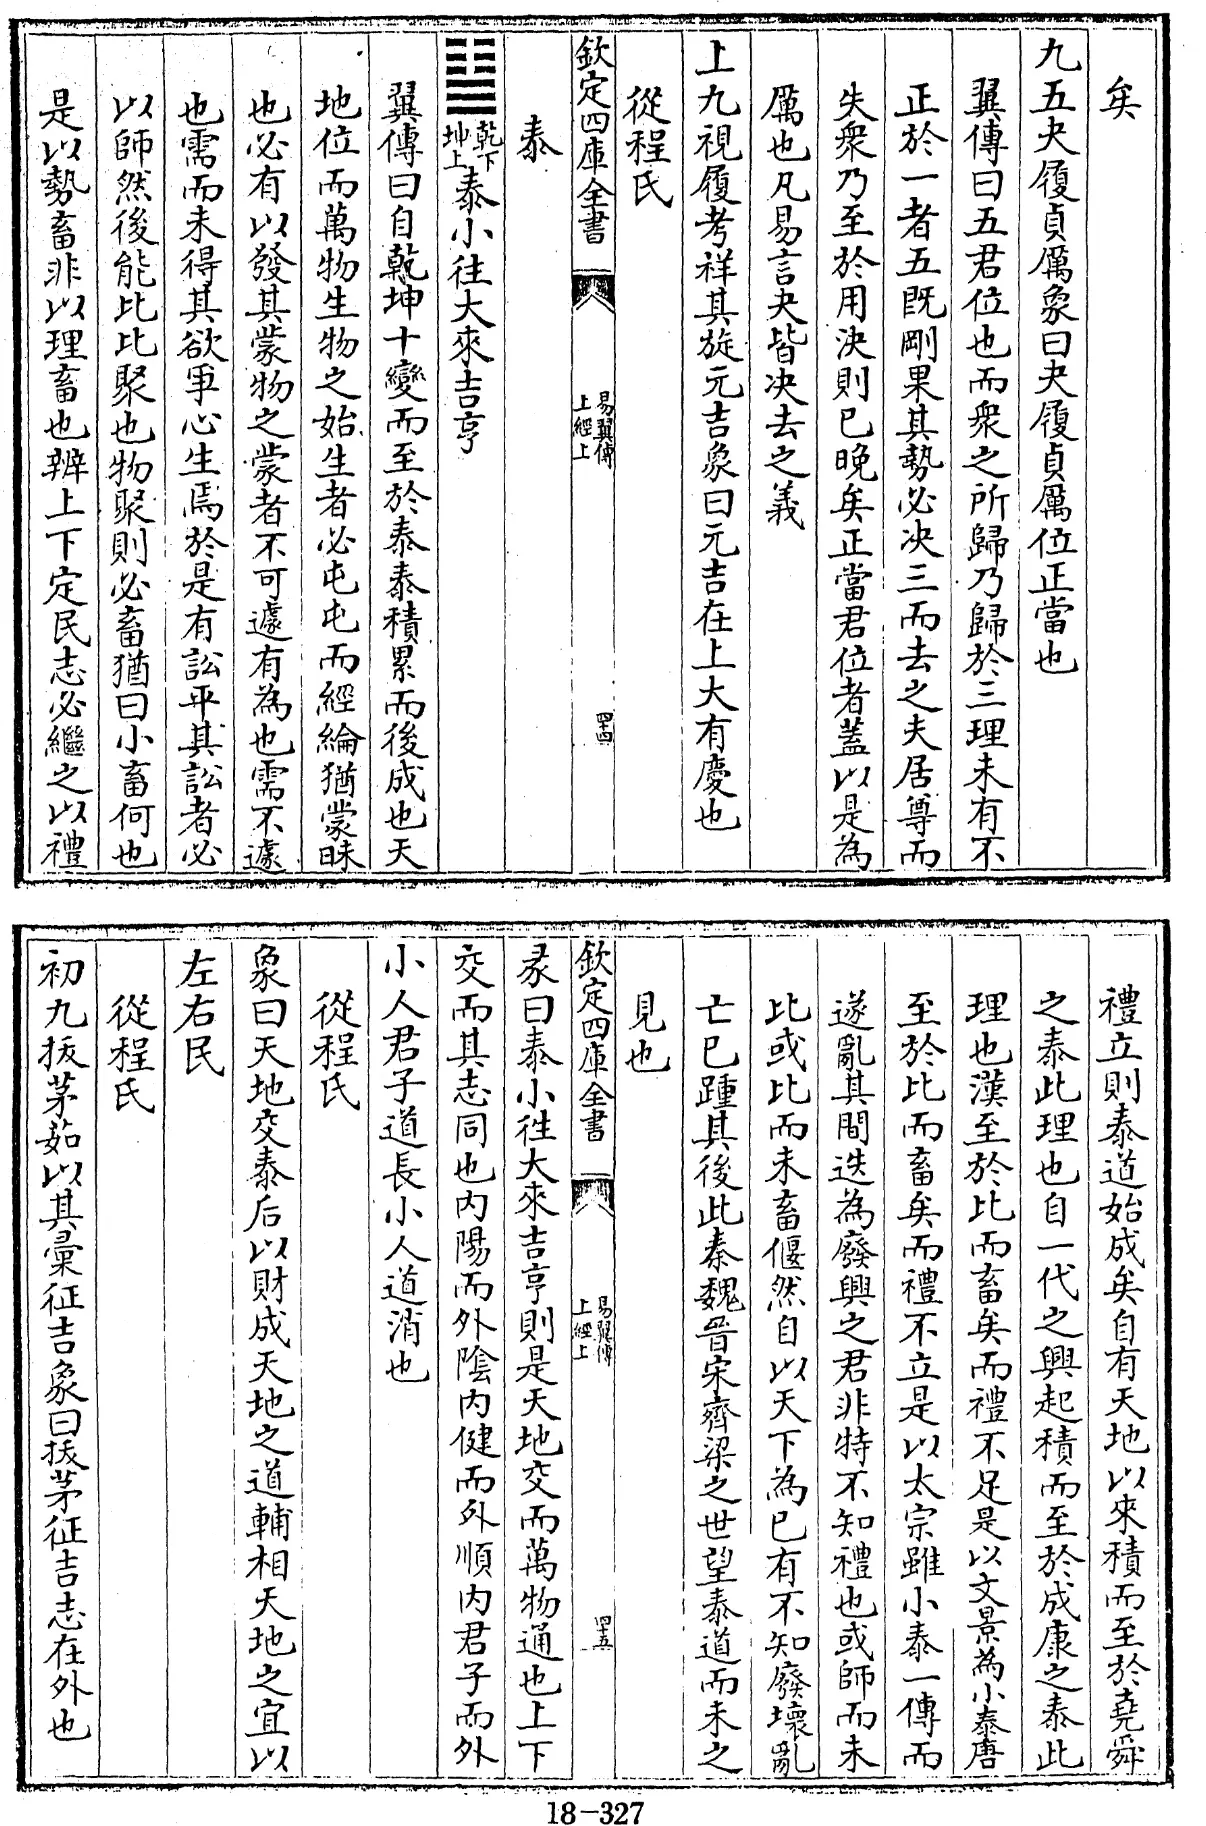 矣
九五夬履貞厲象曰夬履貞厲位正當也
翼傳曰五君位也而衆之所歸乃歸於三理未有不
正於一者五既剛果其勢必決三而去之夫居尊而
失衆乃至於用決則已晚矣正當君位者蓋以是為
厲也凡易言夬皆決去之義
上九視履考祥其旋元吉象曰元吉在上大有慶也
從程氏
欽定四庫全書
易翼傳
上經上
四十四
泰
乾下
坤上
泰小往大來吉亨
翼傳曰自乾坤十變而至於泰泰積累而後成也天
地位而萬物生物之始生者必屯屯而經綸猶蒙昧
也必有以發其蒙物之蒙者不可遽有為也需不遽
也需而未得其欲爭心生焉於是有訟平其訟者必
以師然後能比比聚也物聚則必畜猶曰小畜何也
是以勢畜非以理畜也辨上下定民志必繼之以禮
禮立則泰道始成矣自有天地以來積而至於堯舜
之泰此理也自一代之興起積而至於成康之泰此
理也漢至於比而畜矣而禮不足是以文景為小泰唐
至於比而畜矣而禮不立是以太宗雖小泰一傳而
遂亂其間迭為廢興之君非特不知禮也或師而未
比或比而未畜偃然自以天下為已有不知廢壞亂
亡已踵其後此秦魏晉宋齊梁之世望泰道而未之
見也
欽定四庫全書
易翼傳
上經上
四十五
彖曰泰小往大來吉亨則是天地交而萬物通也上下
交而其志同也内陽而外陰内健而外順内君子而外
小人君子道長小人道消也
從程氏
象曰天地交泰后以財成天地之道輔相天地之宜以
左右民
從程氏
初九拔茅茹以其彙征吉象曰拔茅征吉志在外也
18-327